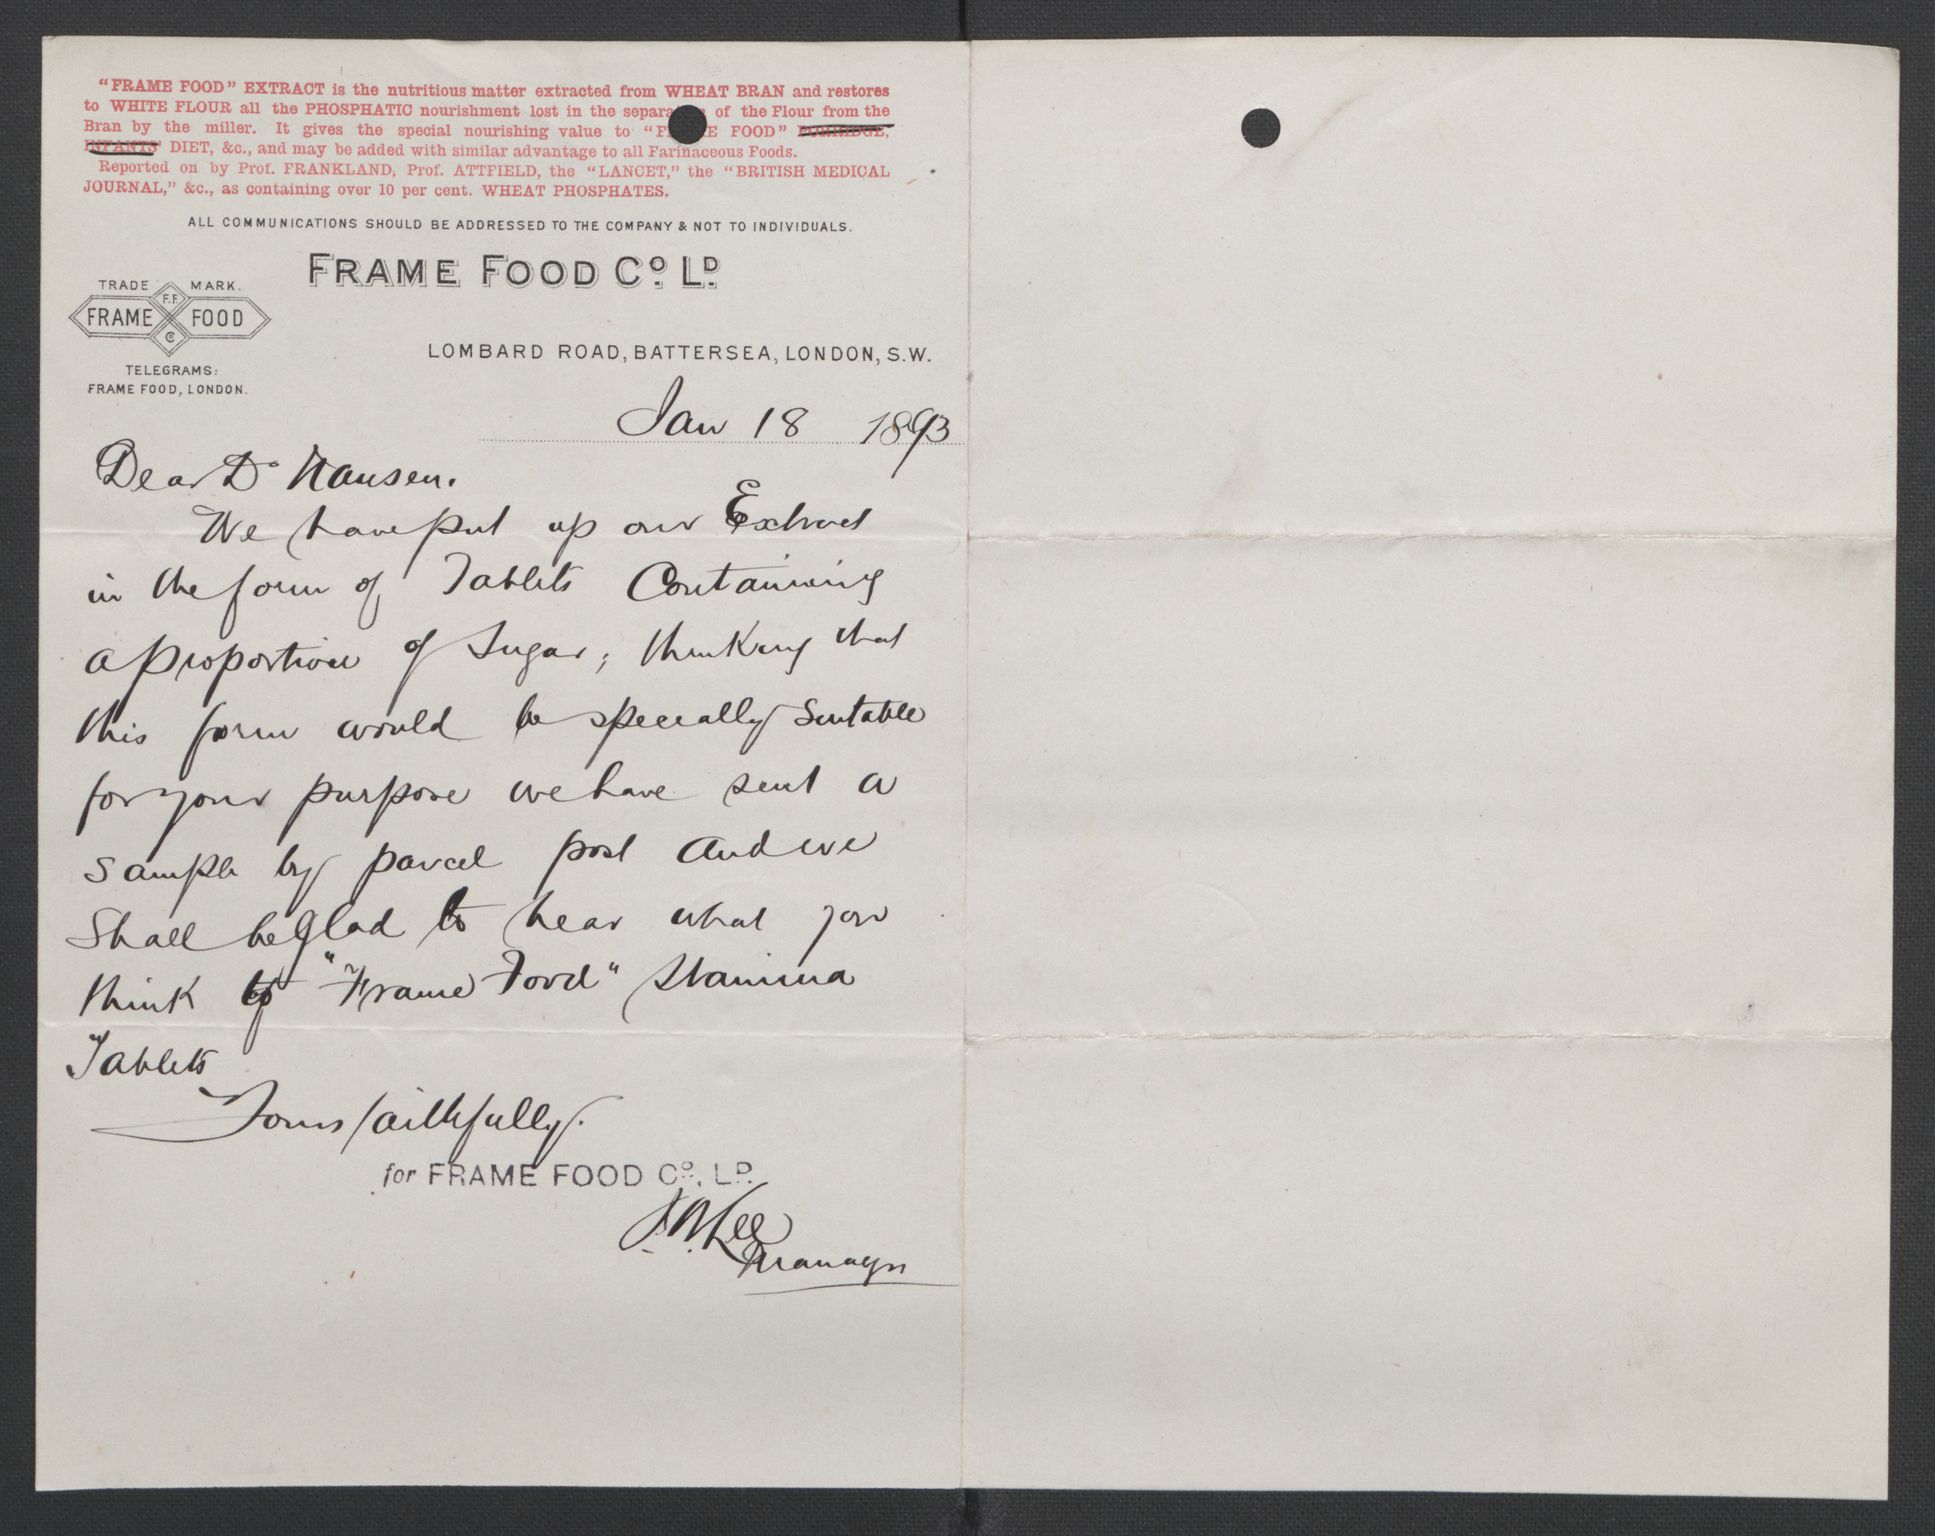 "FRAME FOOD" EXTRACT is the nutritious matter extracted from WHEAT BRAN and restores
to WHITE FLOUR all the PHOSPHATIC nourishment lost in the separa of the Flour from the
Bran by the miller. It gives the special nourishing value to "F E FOOD" PORRIDGE,
INFANTS' DIET, &c., and may be added with similar advantage to all Farinaceous Foods.
Reported on by Prof. FRANKLAND, Prof. ATTFIELD, the "LANCET," the "BRITISH MEDICAL
JOURNAL," &c., as containing over 10 per cent. WHEAT PHOSPHATES.
ALL COMMUNICATIONS SHOULD BE ADDRESSED TO THE COMPANY & NOT TO INDIVIDUALS.
FRAME FOOD Co. LD.
TRADE MARK.
F.F
FRAME FOOD
Co
TELEGRAMS:
FRAME FOOD, LONDON.
LOMBARD ROAD, BATTERSEA, LONDON, S.W.
Jan 18 1893
Dear Dr Nansen.
We have put up our Extract
in the form of Tablets Containing
a proportion of Sugar; thinking that
this form would be specially Suitable
for your purpose we have sent a
sample by parcel post and we
Shall be Glad to hear what you
think of "Frame Food" Stamina
Tablets
Yours faithfully.
for FRAME FOOD Co. LD.
Lee
Manager